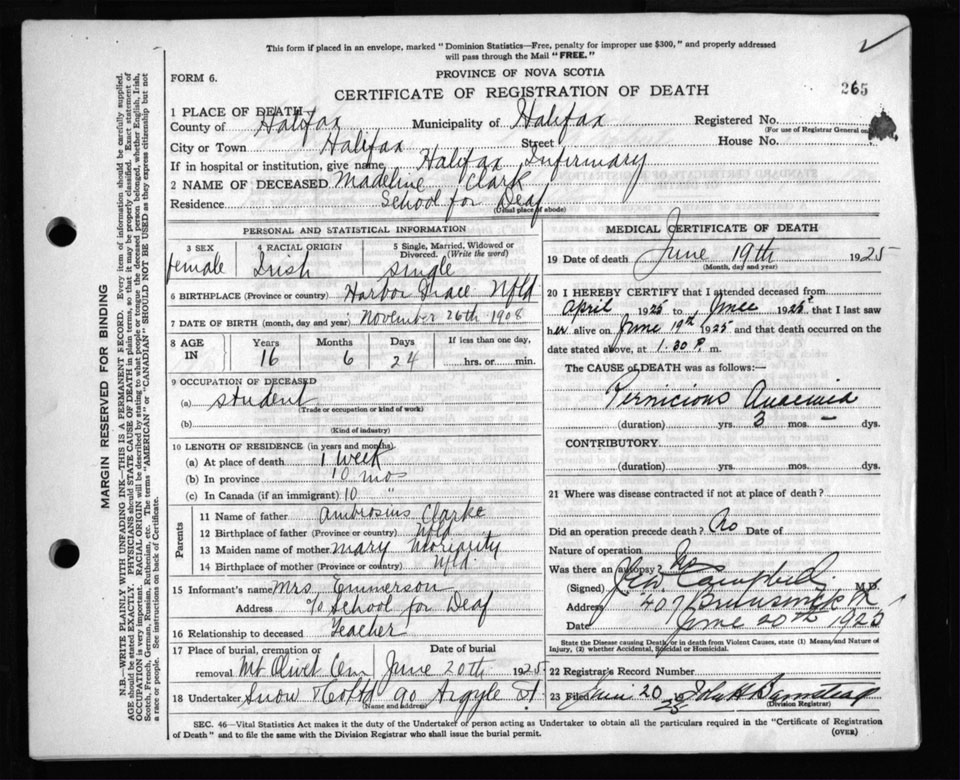 This form if placed in an envelope, marked "Dominion Statistics—Free, penalty for improper use $300," and properly addressed
will pass through the Mail "FREE."
FORM 6.
PROVINCE OF NOVA SCOTIA
CERTIFICATE OF REGISTRATION OF DEATH
265
1 PLACE OF DEATH
County of Halifax Municipality of Halifax Registered No.
(For use of Registrar General on
City or Town Halifax Street House No.
If in hospital or institution, give name Halifax Infirmary
2 NAME OF DECEASED Madeline Clark
Residence School for Deaf
(Usual place of abode)
PERSONAL AND STATISTICAL INFORMATION
3 SEX 4 RACIAL ORIGIN 5 Single, Married, Widowed or Divorced. (Write the word)
female Irish single
6 BIRTHPLACE (Province or country) Harbor Grace Nfld
7 DATE OF BIRTH (month, day and year) November 26th 1908
8 AGE IN Years Months Days If less than one day,
16 6 24 hrs. or min.
9 OCCUPATION OF DECEASED
(a) student
(Trade or occupation or kind of work)
(b)
(Kind of industry)
10 LENGTH OF RESIDENCE (in years and months)
(a) At place of death 1 week
(b) In province 10 mo
(c) In Canada (if an immigrant) 10 "
Parents
11 Name of father Ambrosius Clarke
12 Birthplace of father (Province or country) Nfld
13 Maiden name of mother Mary Moriarity
14 Birthplace of mother (Province or country) Nfld
15 Informant's name Mrs Emmerson
Address c/o School for Deaf
16 Relationship to deceased Teacher
17 Place of burial, cremation or removal Date of burial
Mt Olivet Cem June 20th 1925
18 Undertaker Snow & Co Ltd 90 Argyle St.
(Name and address)
MEDICAL CERTIFICATE OF DEATH
19 Date of death June 19th 1925
(Month, day and year)
20 I HEREBY CERTIFY that I attended deceased from
April 1925 to June 1925 that I last saw
her alive on June 19th 1925 and that death occurred on the
date stated above, at 1.30 P. m.
The CAUSE of DEATH was as follows:—
Pernicious Anaemia
(duration) yrs. 3 mos. – dys.
CONTRIBUTORY
(duration) yrs. mos. dys.
21 Where was disease contracted if not at place of death?
Did an operation precede death? No Date of
Nature of operation
Was there an autopsy? No
(Signed) Campbell M.D.
Address 407 Brunswick St
Date June 20th 1925
State the Disease causing Death, or in death from Violent Causes, state (1) Means and Nature of
Injury, (2) whether Accidental, Suicidal or Homicidal.
22 Registrar's Record Number
23 Filed June 20 25 John H Barnstead
(Division Registrar)
SEC. 46—Vital Statistics Act makes it the duty of the Undertaker or person acting as Undertaker to obtain all the particulars required in the "Certificate of Registration
of Death" and to file the same with the Division Registrar who shall issue the burial permit.
(OVER)
MARGIN RESERVED FOR BINDING
N.B.—WRITE PLAINLY WITH UNFADING INK—THIS IS A PERMANENT RECORD. Every item of information should be carefully supplied.
AGE should be stated EXACTLY. PHYSICIANS should STATE CAUSE OF DEATH in plain terms, so that it may be properly classified. Exact statement of
OCCUPATION is very important. RACIAL ORIGIN will be described by stating to what people or tongue the deceased person belonged, whether English, Irish,
Scotch, French, German, Russian, Ruthenian, etc. The terms "AMERICAN" or "CANADIAN" SHOULD NOT BE USED as they express citizenship but not
a race or people. See instructions on back of Certificate.